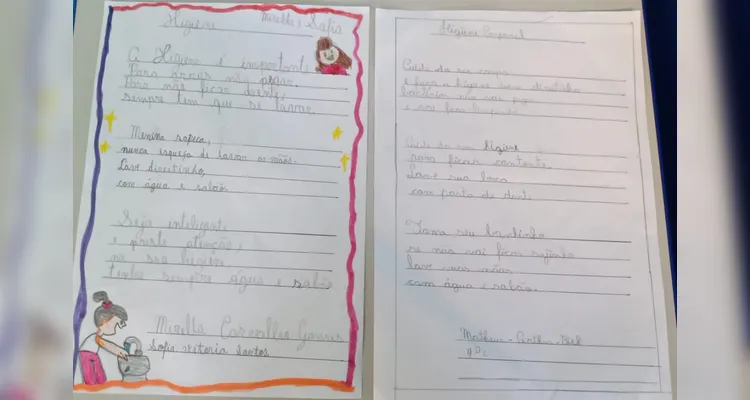 Higiene
Mirella e Sofia
A Higiene é importante
Para
Para não ficar doente,
sempre tem que se lavar.
Menina sapeca,
nunca esqueça de lavar as mãos.
Lave direitinho,
com água e sabão.
Seja inteligente
e preste atenção,
na sua higiene
tenha sempre água e sabão
Mirella Carvalho Gomes
Sofia vitoria Santos
Higiene Corporal
Cuide do seu corpo
e faça a higiene
bactéria não vai pegar
e
Cuide da sua higiene
para ficar contente.
Lave sua boca
com pasta de dente.
Toma seu banhinho
se não vai ficar sujinho
lave suas mãos
com água e sabão.
Matheus -
4º